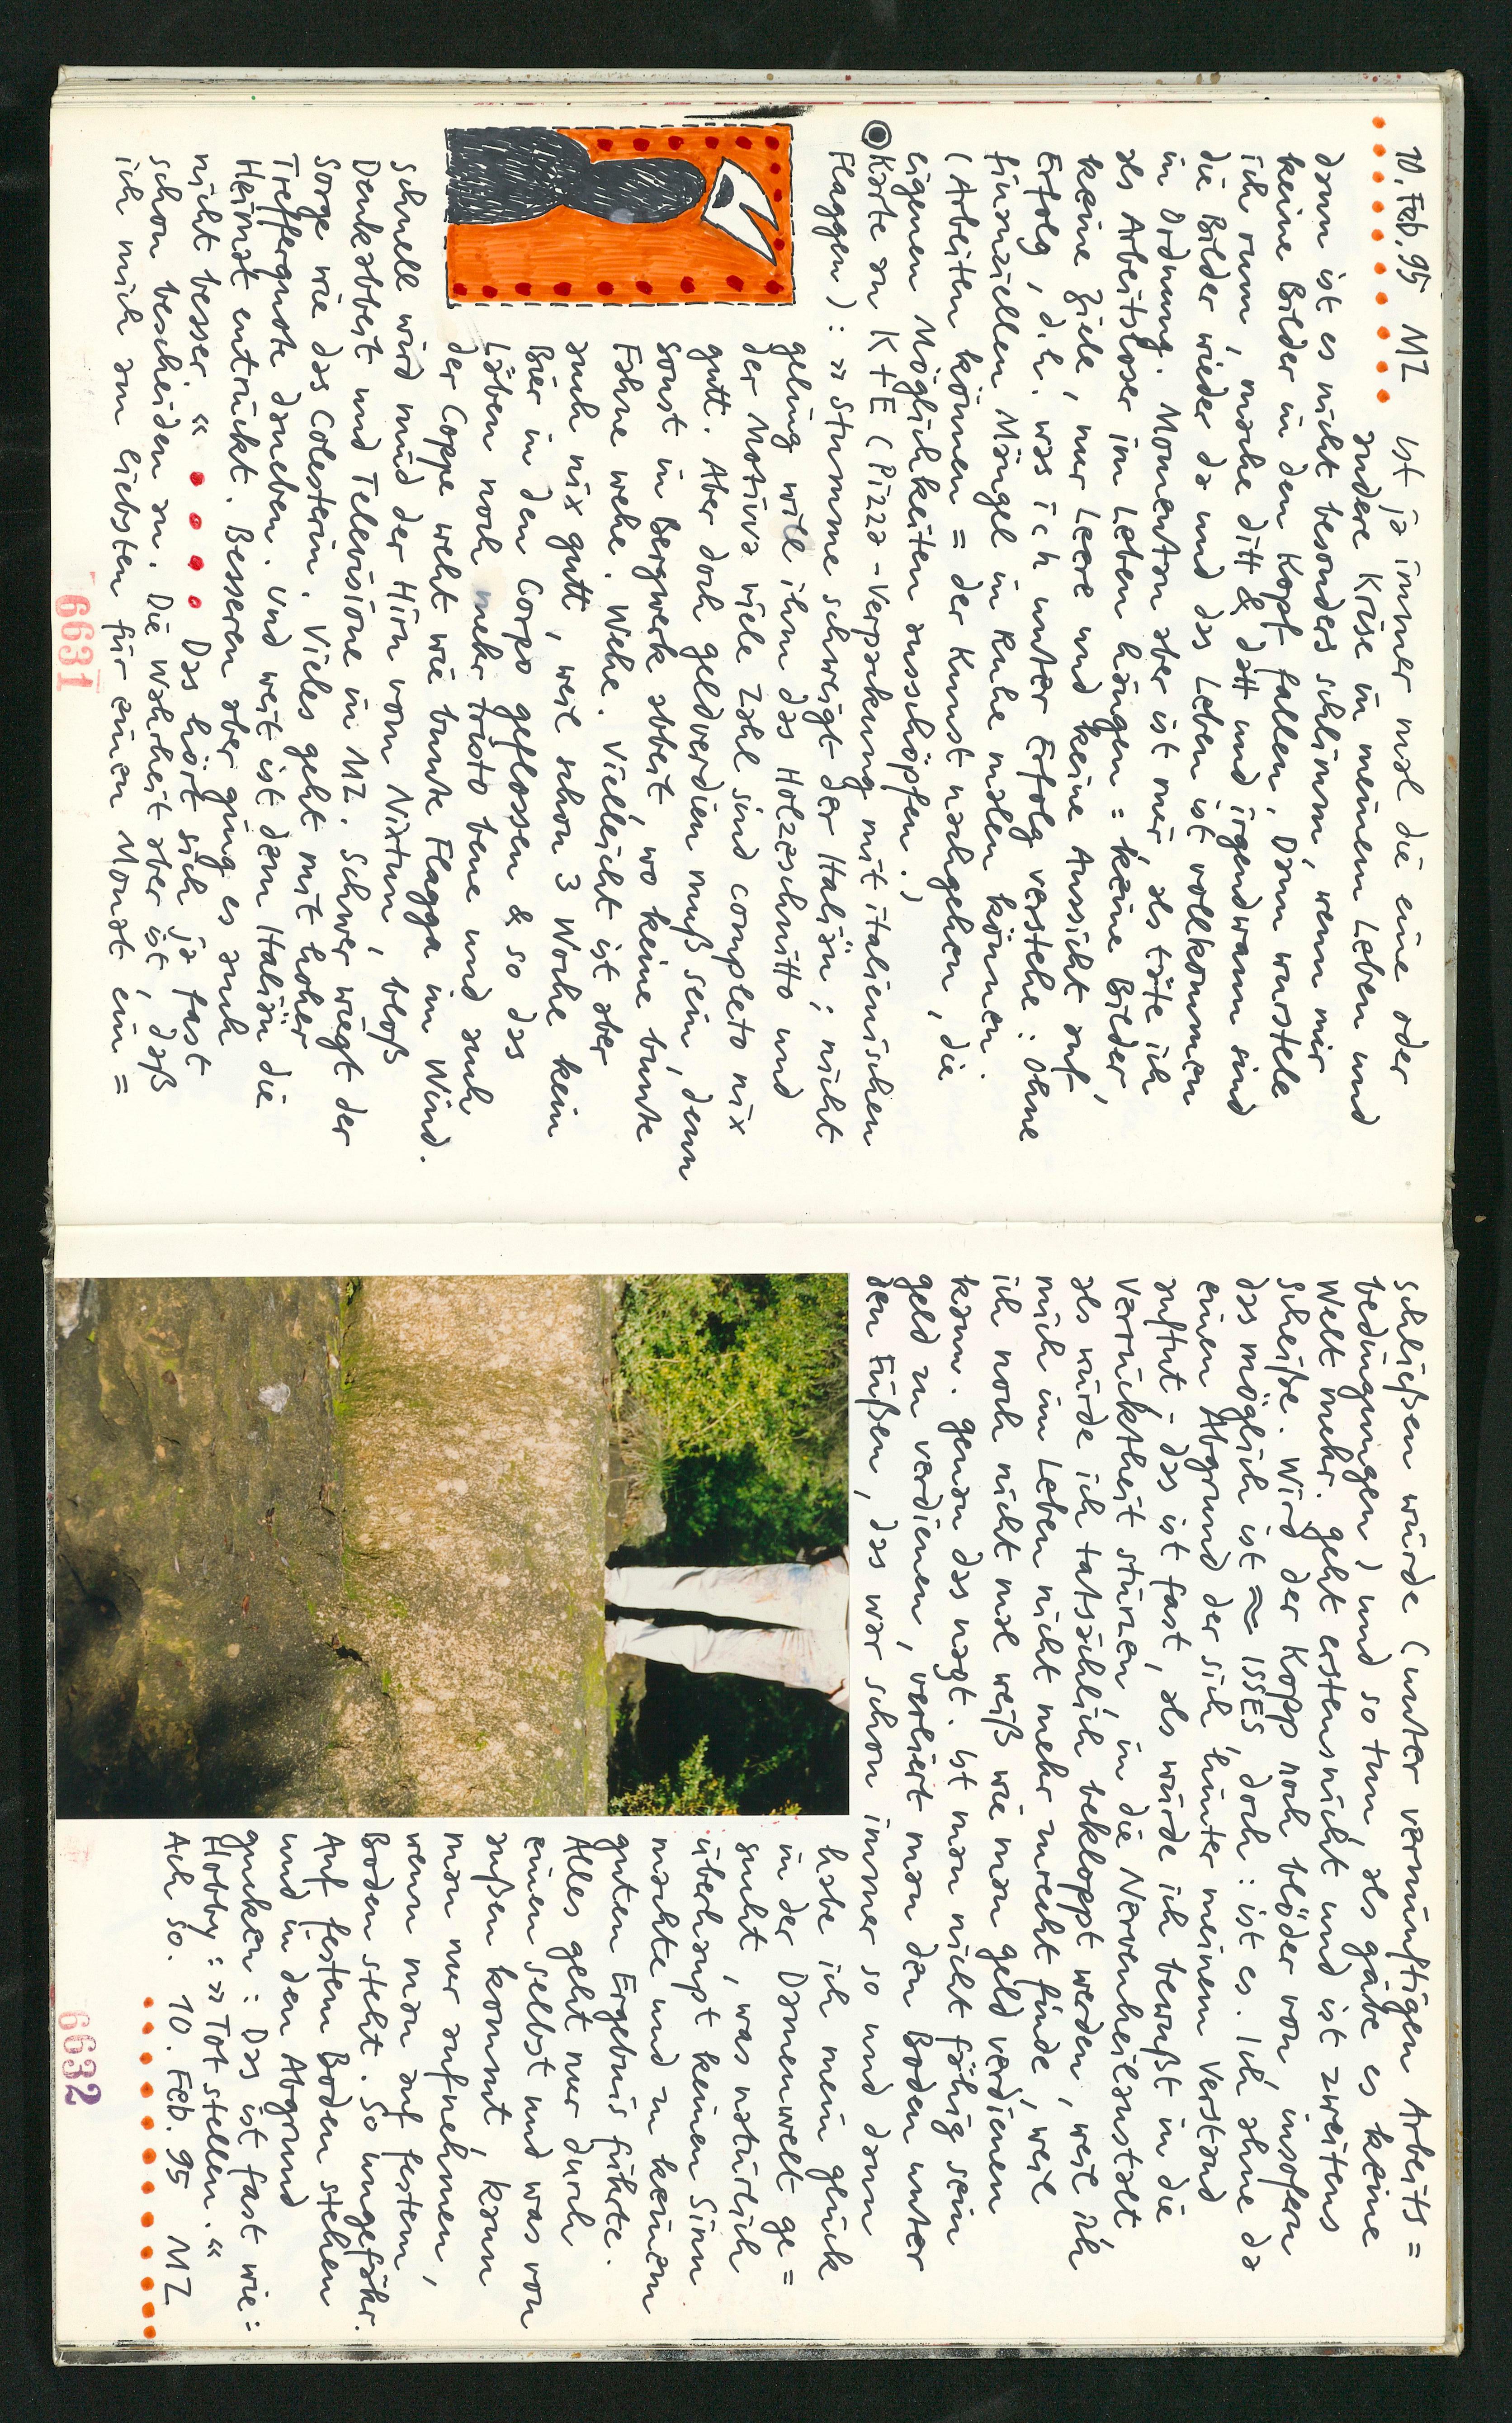 10. Feb. 95 MZ Ist ja immer mal die eine oder
andere Krise in meinem Leben und
dann ist es nicht besonders schlimm, wenn mir
keine Bilder in den Kopf fallen. Dann wurstele
ich rum, mache ditt & datt und irgendwann sind
die Bilder wieder da und das Leben ist vollkommen
in Ordnung. Momentan aber ist mir, als täte ich
als Arbeitsloser im Leben hängen = keine Bilder,
keine Ziele, nur Leere und keine Aussicht auf
Erfolg, d.h. was ich unter Erfolg verstehe: ohne
finanziellen Mängel in Ruhe malen können.
(Arbeiten können = der Kunst nachgehen, die
eigenen Möglichkeiten ausschöpfen.)
Karte an K+E (Pizza-Verpackung mit italienischen
Flaggen): »Stumme schweigt der Italiän; nicht
geling will ihm das Holzeschnitto und
der Motivva viele Zahl sind completo nix
gutt. Aber doch geldverdien muß sein, denn
sonst in Bergwerk abbeit, wo keine bunte
Fahne wehe. Wehe. Vielleicht ist aber
auch nix gutt, weil schon 3 Woche kein
Bier in den Corpo geflossen & so das
Läben noch mehr tristo bene und auch
der Coppe weht wie bunte Flagga im Wind.
Schnell wird müd der Hirn vom Nixtun, bloß
Denkabbeit und Televisione in MZ. Schwer wiegt der
Sorge wie das Colesterin. Vieles geht mit hoher
Treffergnote daneben. Und weit ist dem Italiän die
Heimat entrückt. Besseren aber ging es auch
nicht besser« Das hört sich ja fast
schon bescheiden an. Die Wahrheit aber ist, daß
ich mich am liebsten für einen Monat ein=
6631
schließen würde (unter vernünftigen Arbeits=
bedingungen) und so tun, als gäbe es keine
Welt mehr. Geht erstens nicht und ist zweitens
scheiße. Wird der Kopp noch blöder von, insofern
das möglich ist ≈ ISSES doch: ist es. Ich ahne da
einen Abgrund der sich hinter meinem Verstand
auftut - das ist fast, als würde ich bewußt in die
Verrücktheit stürzen, in die Nervenheilanstalt
als würde ich tatsächlich bekloppt werden, weil ich
mich im Leben nicht mehr zurecht finde, weil
ich noch nicht mal weiß wie man Geld verdienen
kann. Genau das nagt. Ist man nicht fähig sein
Geld zu verdienen, verliert man den Boden unter
den Füßen, das war schon immer so und dann
habe ich mein Glück
in der Damenwelt ge=
sucht, was natürlich
überhaupt keinen Sinn
machte und zu keinem
guten Ergebnis führte.
Alles geht nur durch
einen selbst und was von
außen kommt, kann
man nur aufnehmen,
wenn man auf festem
Boden steht. So ungefähr.
Auf festem Boden stehen
und in den Abgrund
gucken: Das ist fast wie:
Hobby: »Tot stellen.«
Ach so. 10. Feb. 95 MZ
6632